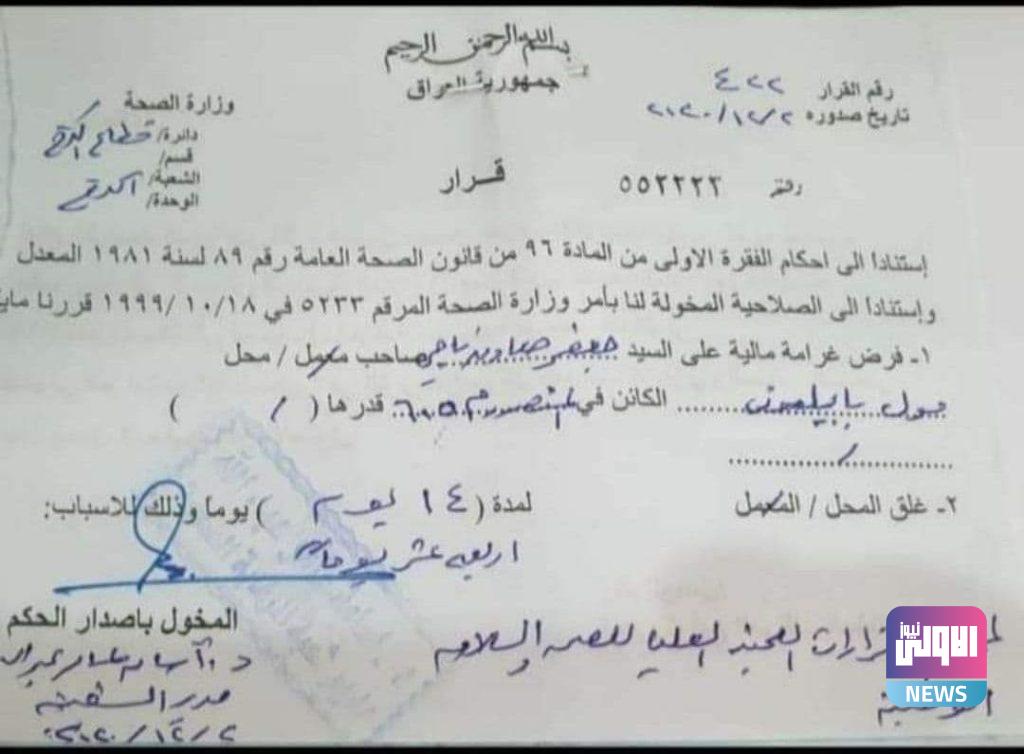 بسم الله الرحمن الرحيم
جمهورية العراق
رقم القرار ٤٢٢
تاريخ صدوره ٢٠٢٠/١٢/٢
وزارة الصحة
دائرة/ قطاع الكرخ
قسم/
الشعبة/
الوحدة/
رقم ٥٥٢٢٢٢
قرار
إستنادا الى احكام الفقرة الاولى من المادة ٩٦ من قانون الصحة العامة رقم ٨٩ لسنة ١٩٨١ المعدل
وإستنادا الى الصلاحية المخولة لنا بأمر وزارة الصحة المرقم ٥٢٣٣ في ١٩٩٩/١٠/١٨ قررنا ماي
١- فرض غرامة مالية على السيد جعفر صاحب معمل / محل
مول بابيلون الكائن في المنصور م ٦٠٥ قدرها ( / )
/
٢- غلق المحل / المعمل لمدة ( ١٤ يوم ) يوما وذلك للاسباب:
اربعة عشر يوما
المخول باصدار الحكم
قرارات اللجنة العليا للصحة والسلامة
الوطنية
مدير الشعبة
٢٠٢٠/١٢/٢
الاولى نيوز
NEWS